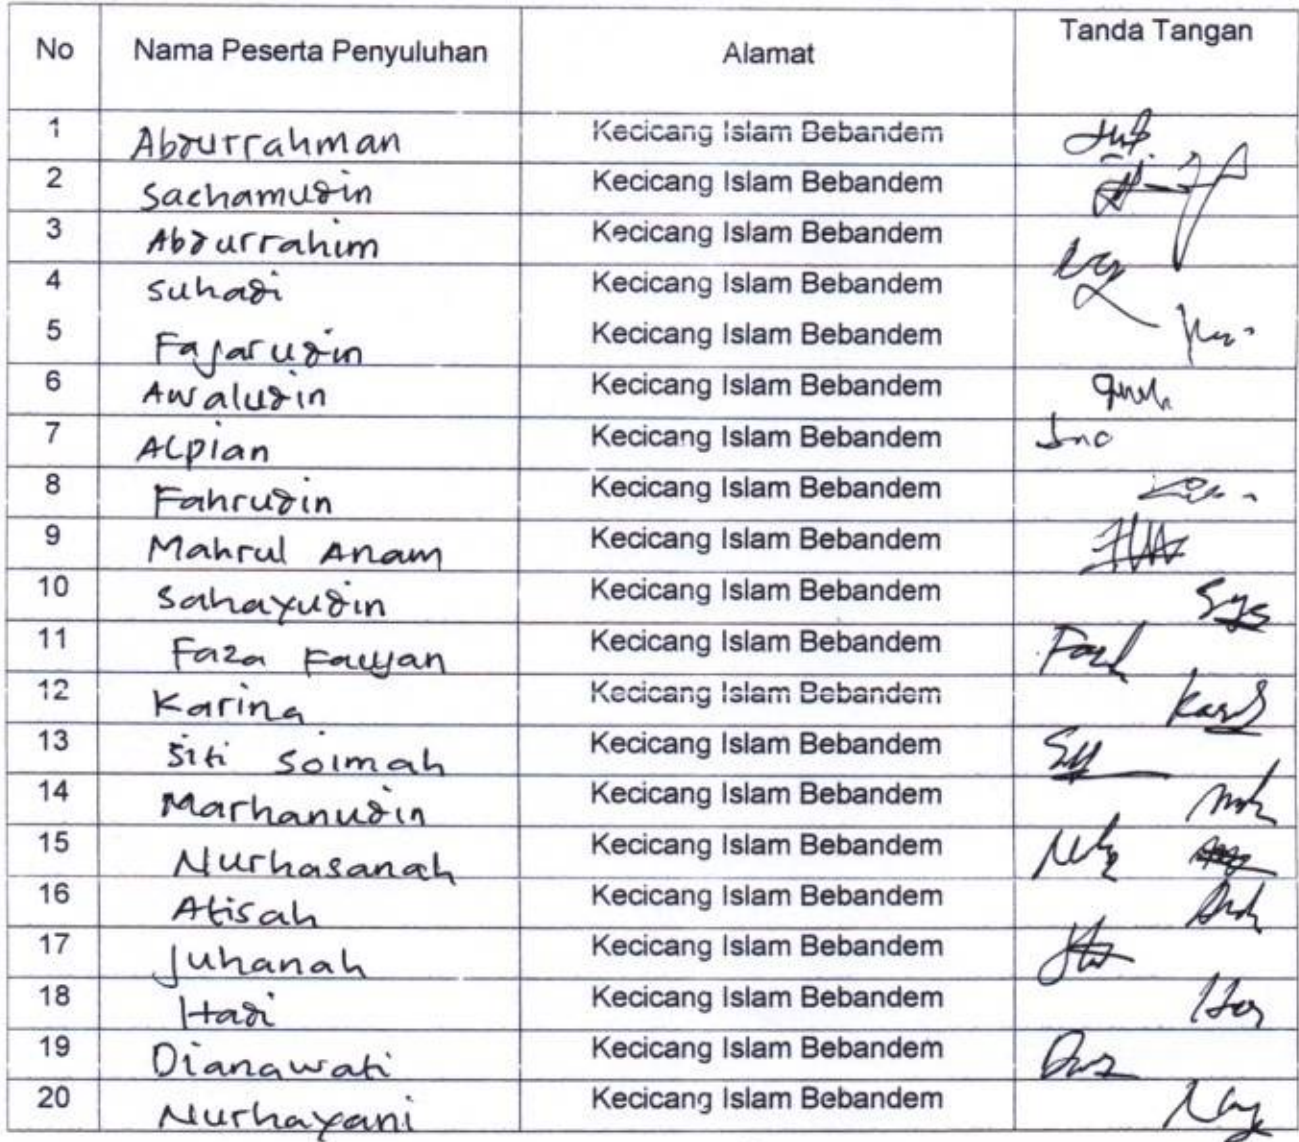 No Nama Peserta Penyuluhan Alamat Tanda Tangan
1 Abdurrahman Kecicang Islam Bebandem
2 Sachamudin Kecicang Islam Bebandem
3 Abdurrahim Kecicang Islam Bebandem
4 Suhadi Kecicang Islam Bebandem
5 Fajarudin Kecicang Islam Bebandem
6 Awaludin Kecicang Islam Bebandem
7 Alpian Kecicang Islam Bebandem
8 Fahrudin Kecicang Islam Bebandem
9 Mahrul Anam Kecicang Islam Bebandem
10 Sahayudin Kecicang Islam Bebandem
11 Faza Kecicang Islam Bebandem
12 Karina Kecicang Islam Bebandem
13 Siti Soimah Kecicang Islam Bebandem
14 Marhanudin Kecicang Islam Bebandem
15 Nurhasanah Kecicang Islam Bebandem
16 Kecicang Islam Bebandem
17 Juhanah Kecicang Islam Bebandem
18 Hadi Kecicang Islam Bebandem
19 Dianawati Kecicang Islam Bebandem
20 Nurhayani Kecicang Islam Bebandem